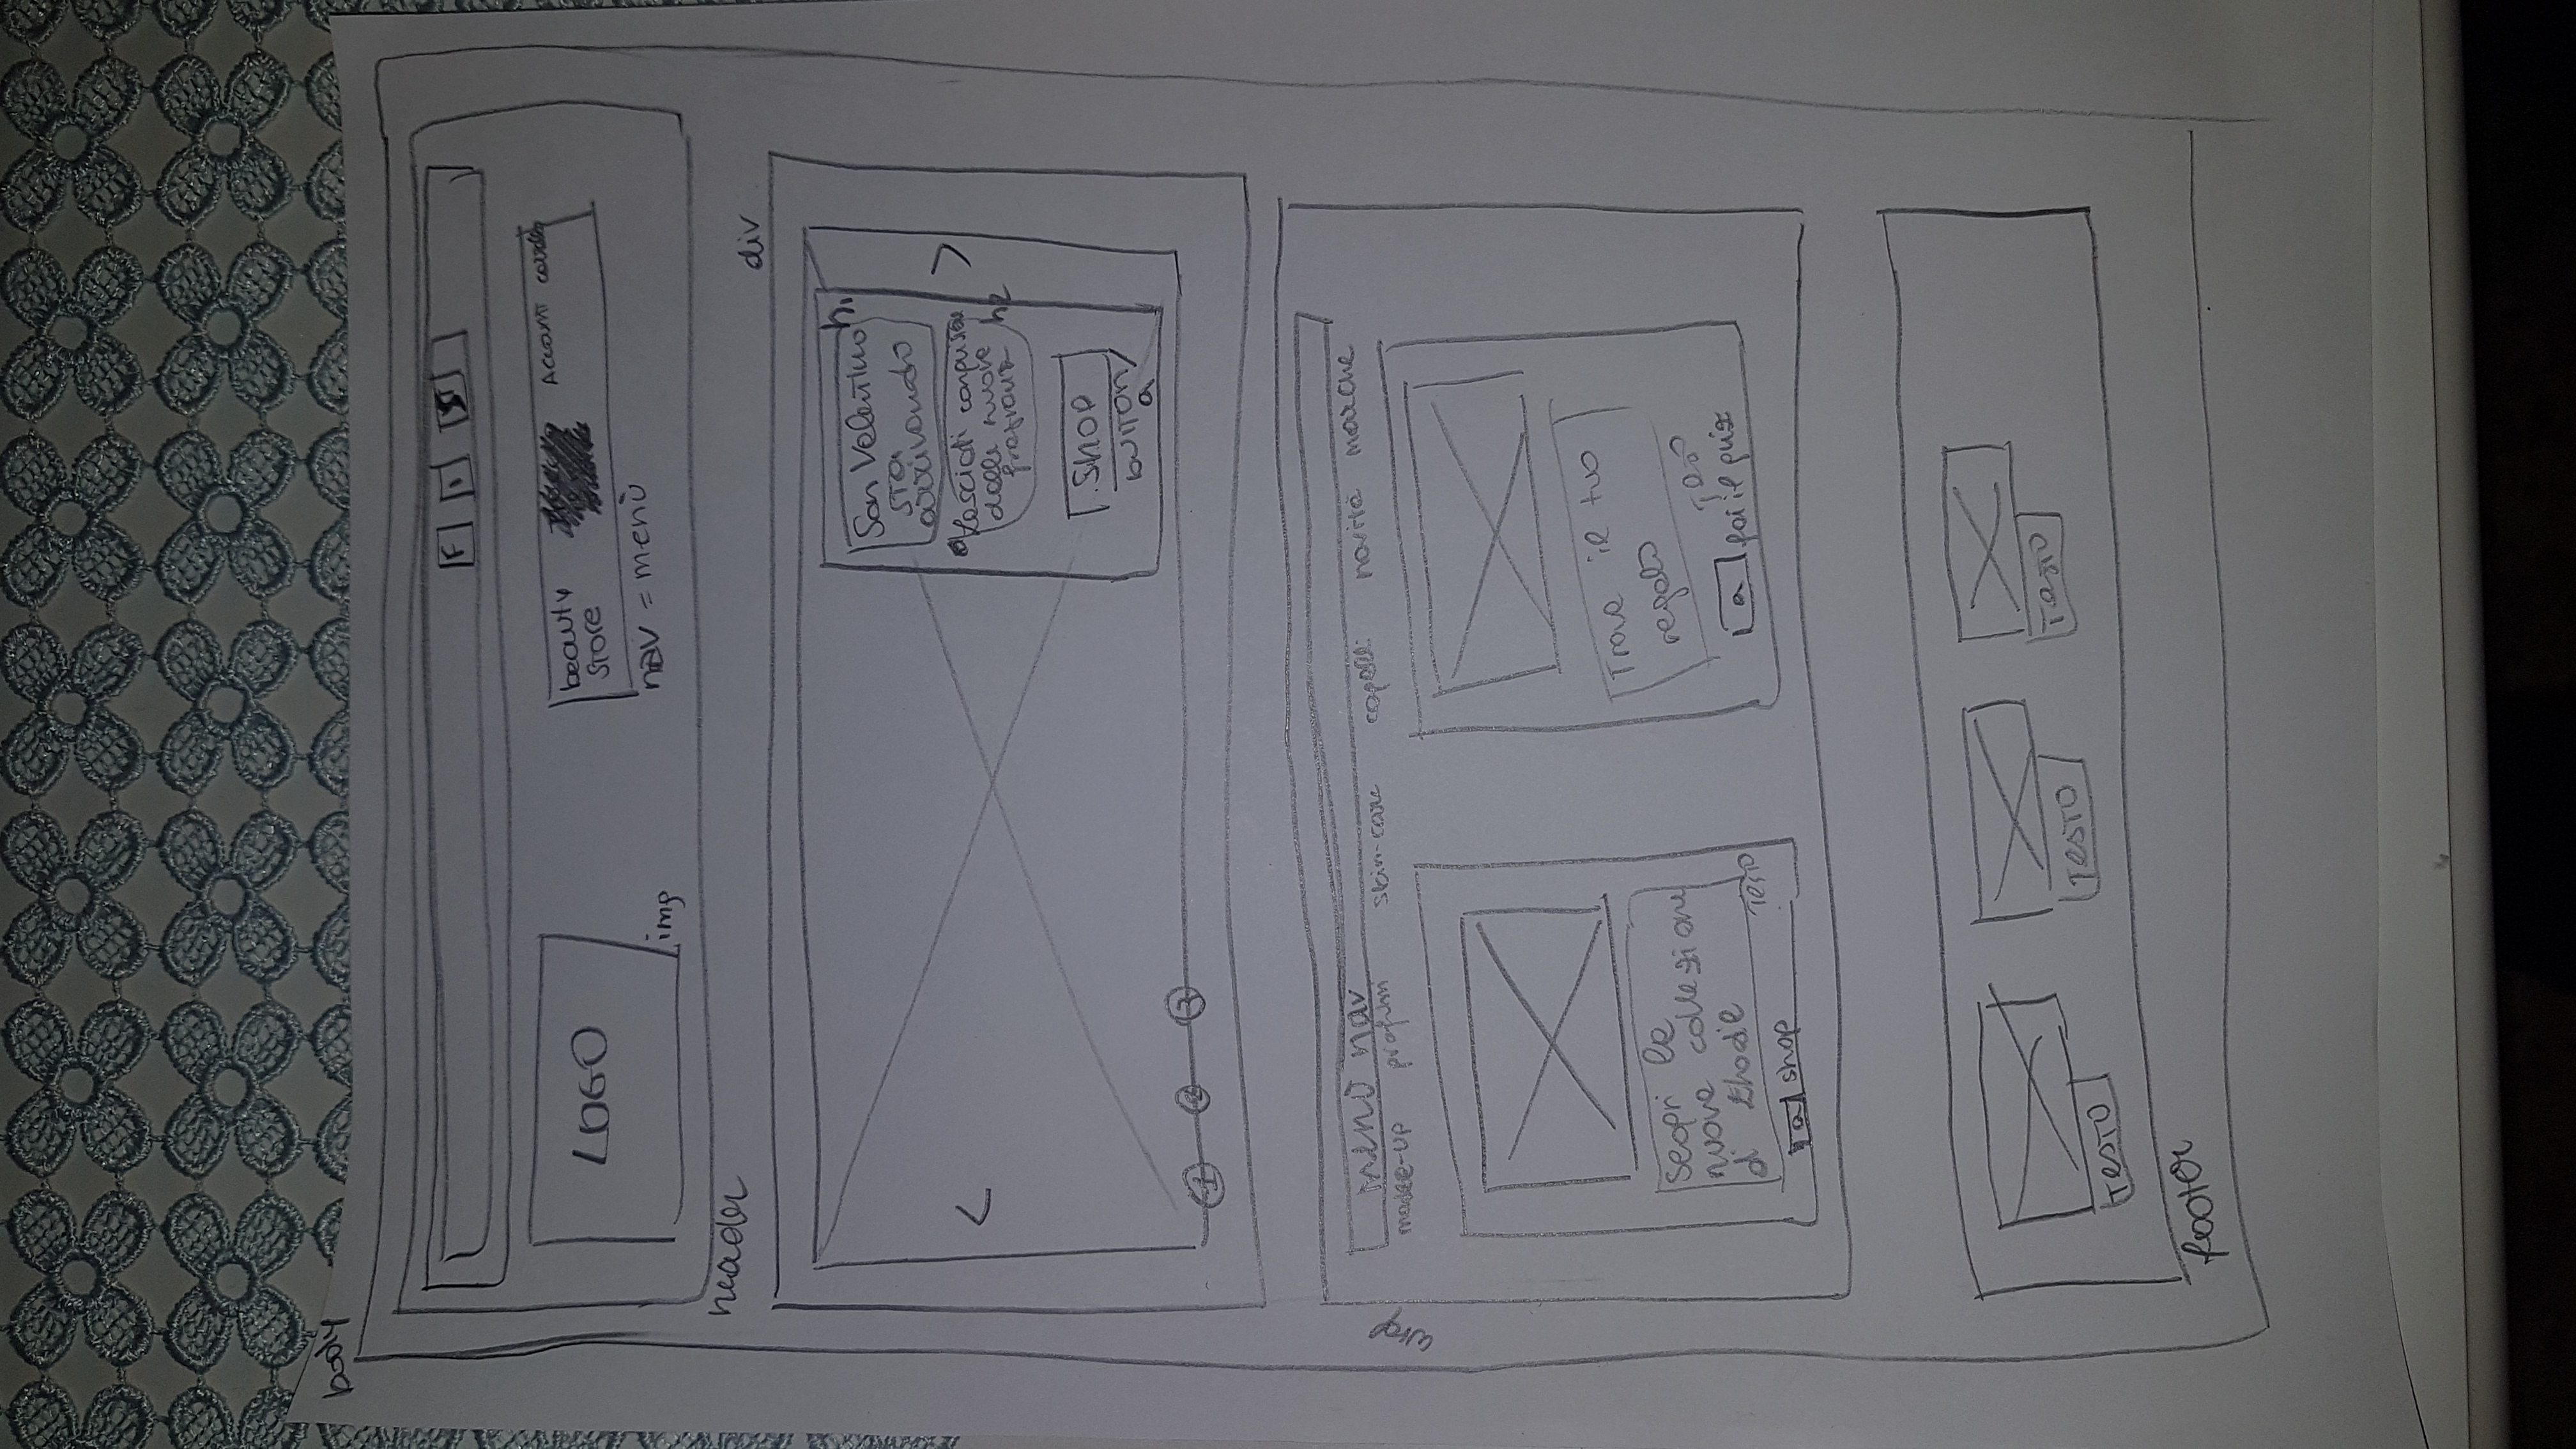 body
F I
LOGO
img
beauty
store
Account
nav = menù
header
div
San Valentino h1
sta
arrivando
Lasciati conquistare
dalle nuove
h2
<
>
Shop
button/
a
1 2 3
wrap
menù nav
make-up profumi skin-care capelli novità marche
Scopri la
nuova collezione
di
Testo
a shop
Trova il tuo
regalo
Testo
a fai il quiz
Testo
Testo
Testo
footer